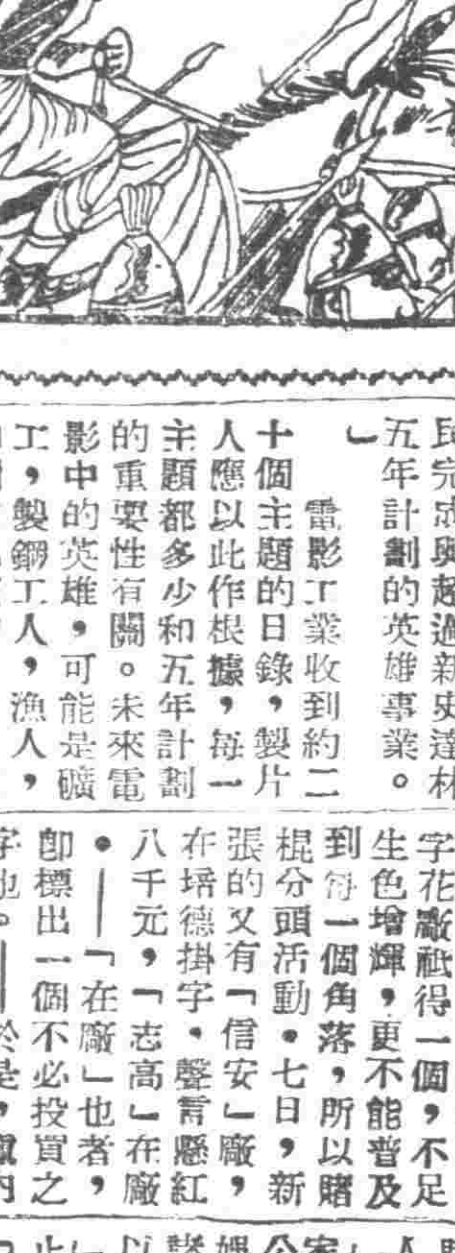 民完成與超過新史達林
五年計劃的英雄事業。
」
電影工業收到約二
十個主題的目錄，製片
人應以此作根據，每一
主題都多少和五年計劃
的重要性有關。未來電
影中的英雄，可能是礦
工，製鋼工人，漁人，
字花廠祇得一個，不足
生色增輝，更不能普及
到每一個角落，所以賭
棍分頭活動．七日，新
張的又有「信安」廠，
在培德掛字．聲言懸紅
八千元，「志高」在廠
．—「在廠」也者，
卽標出一個不必投買之
字也。—於是，